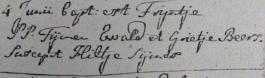 4 Junii bapt: est Fijtje
PP. Tijmen Ewald et Grietje Beers.
Suscept Hiltje Sijmons